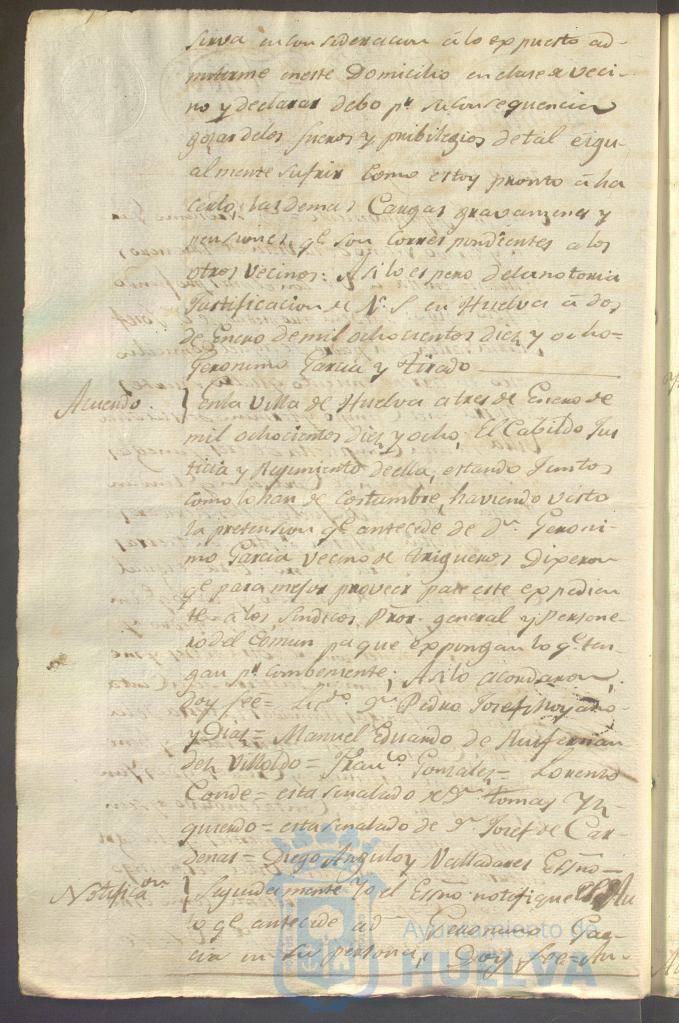 sirva en consideracion â lo expuesto ad-
mitirme en este Domicilio en clase de veci-
no y declarar debo pr. su consequencia
gozar de los fueros y pribilegios de tal e igu-
almente sufrir como estoy pronto â ha
cerlo, las demas Cargas gravamenes y
pensiones, qe. son correspondientes a los
otros vecinos: Asi lo espero de la notoria
Justificacion de V. S. en Huelva â dos
de Enero de mil ochocientos diez y ocho=
Geronimo Garcia y Tirado
Acuerdo } en la Villa de Huelva a tres de Enero de
mil ochocientos diez y ocho, El Cabildo Jus
ticia y Rejimiento de ella, estando Juntos
como lo han de costumbre, haviendo visto
la pretension qe. antecede de dn. Geroni-
mo Garcia vecino de Trigueros Dixeron
qe. para mejor proveer pase este expedien
te a los Sindicos Pror. general y Persone-
ro del Comun pa que expongan lo qe. ten-
gan pr. combeniente; Asi lo acordaron,
doy feê= Licdo. dn. Pedro Josef
y Dias= Manuel Eduardo de Ruifernan
des Villoldo= Franco. Gonzales= Lorenzo
Conde= esta señalado de Dn. tomas Yz-
quierdo= esta señalado de dn. Josef de Car-
denas= Diego Angulo y Valladares Essno=
Notificaon } Seguidamente Yo el Essno notifique el Au
to qe. antecede a dn. Geronimo Gar-
cia en su persona, Doy fee= An-
Ayuntamiento de
HUELVA